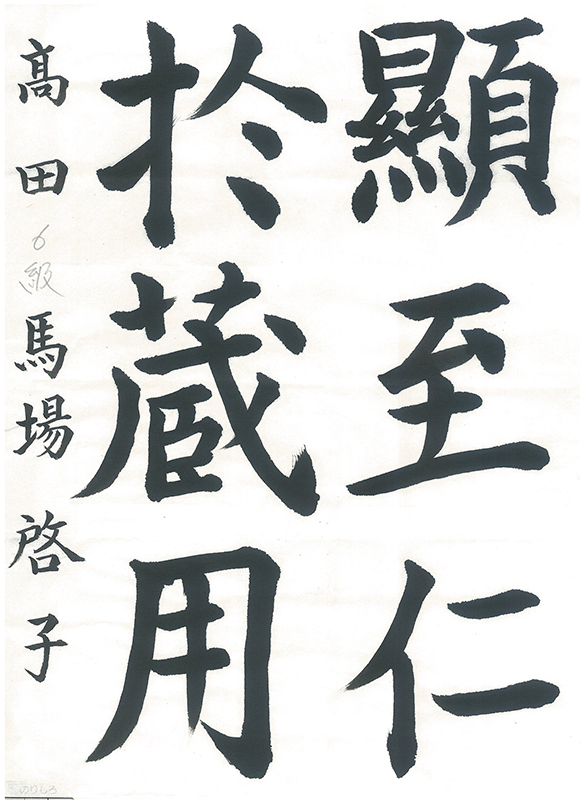 顯至仁
於蔵用
髙田6級馬場啓子
のりしろ